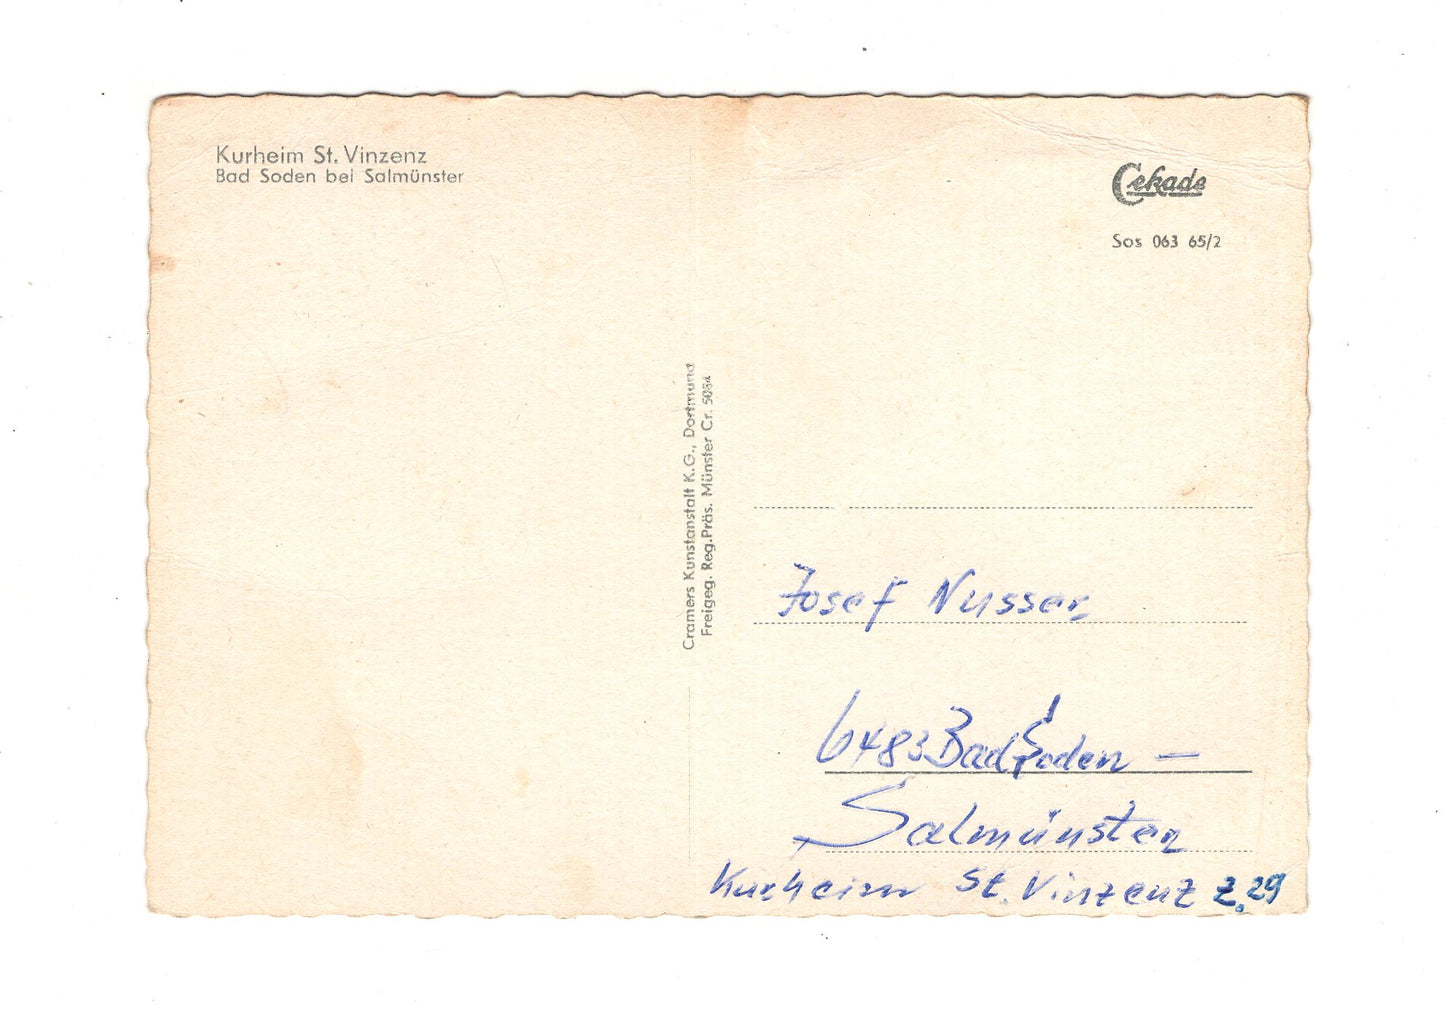 Kurheim St. Vinzenz
Bad Soden bei Salmünster
Cekade
Sos 063 65/2
Cramers Kunstanstalt K.G., Dortmund
Freigeg. Reg.Präs. Münster Cr. 5084
Josef Nusser
6483 Bad Soden –
Salmünster
Kurheim St. Vinzenz Z. 29